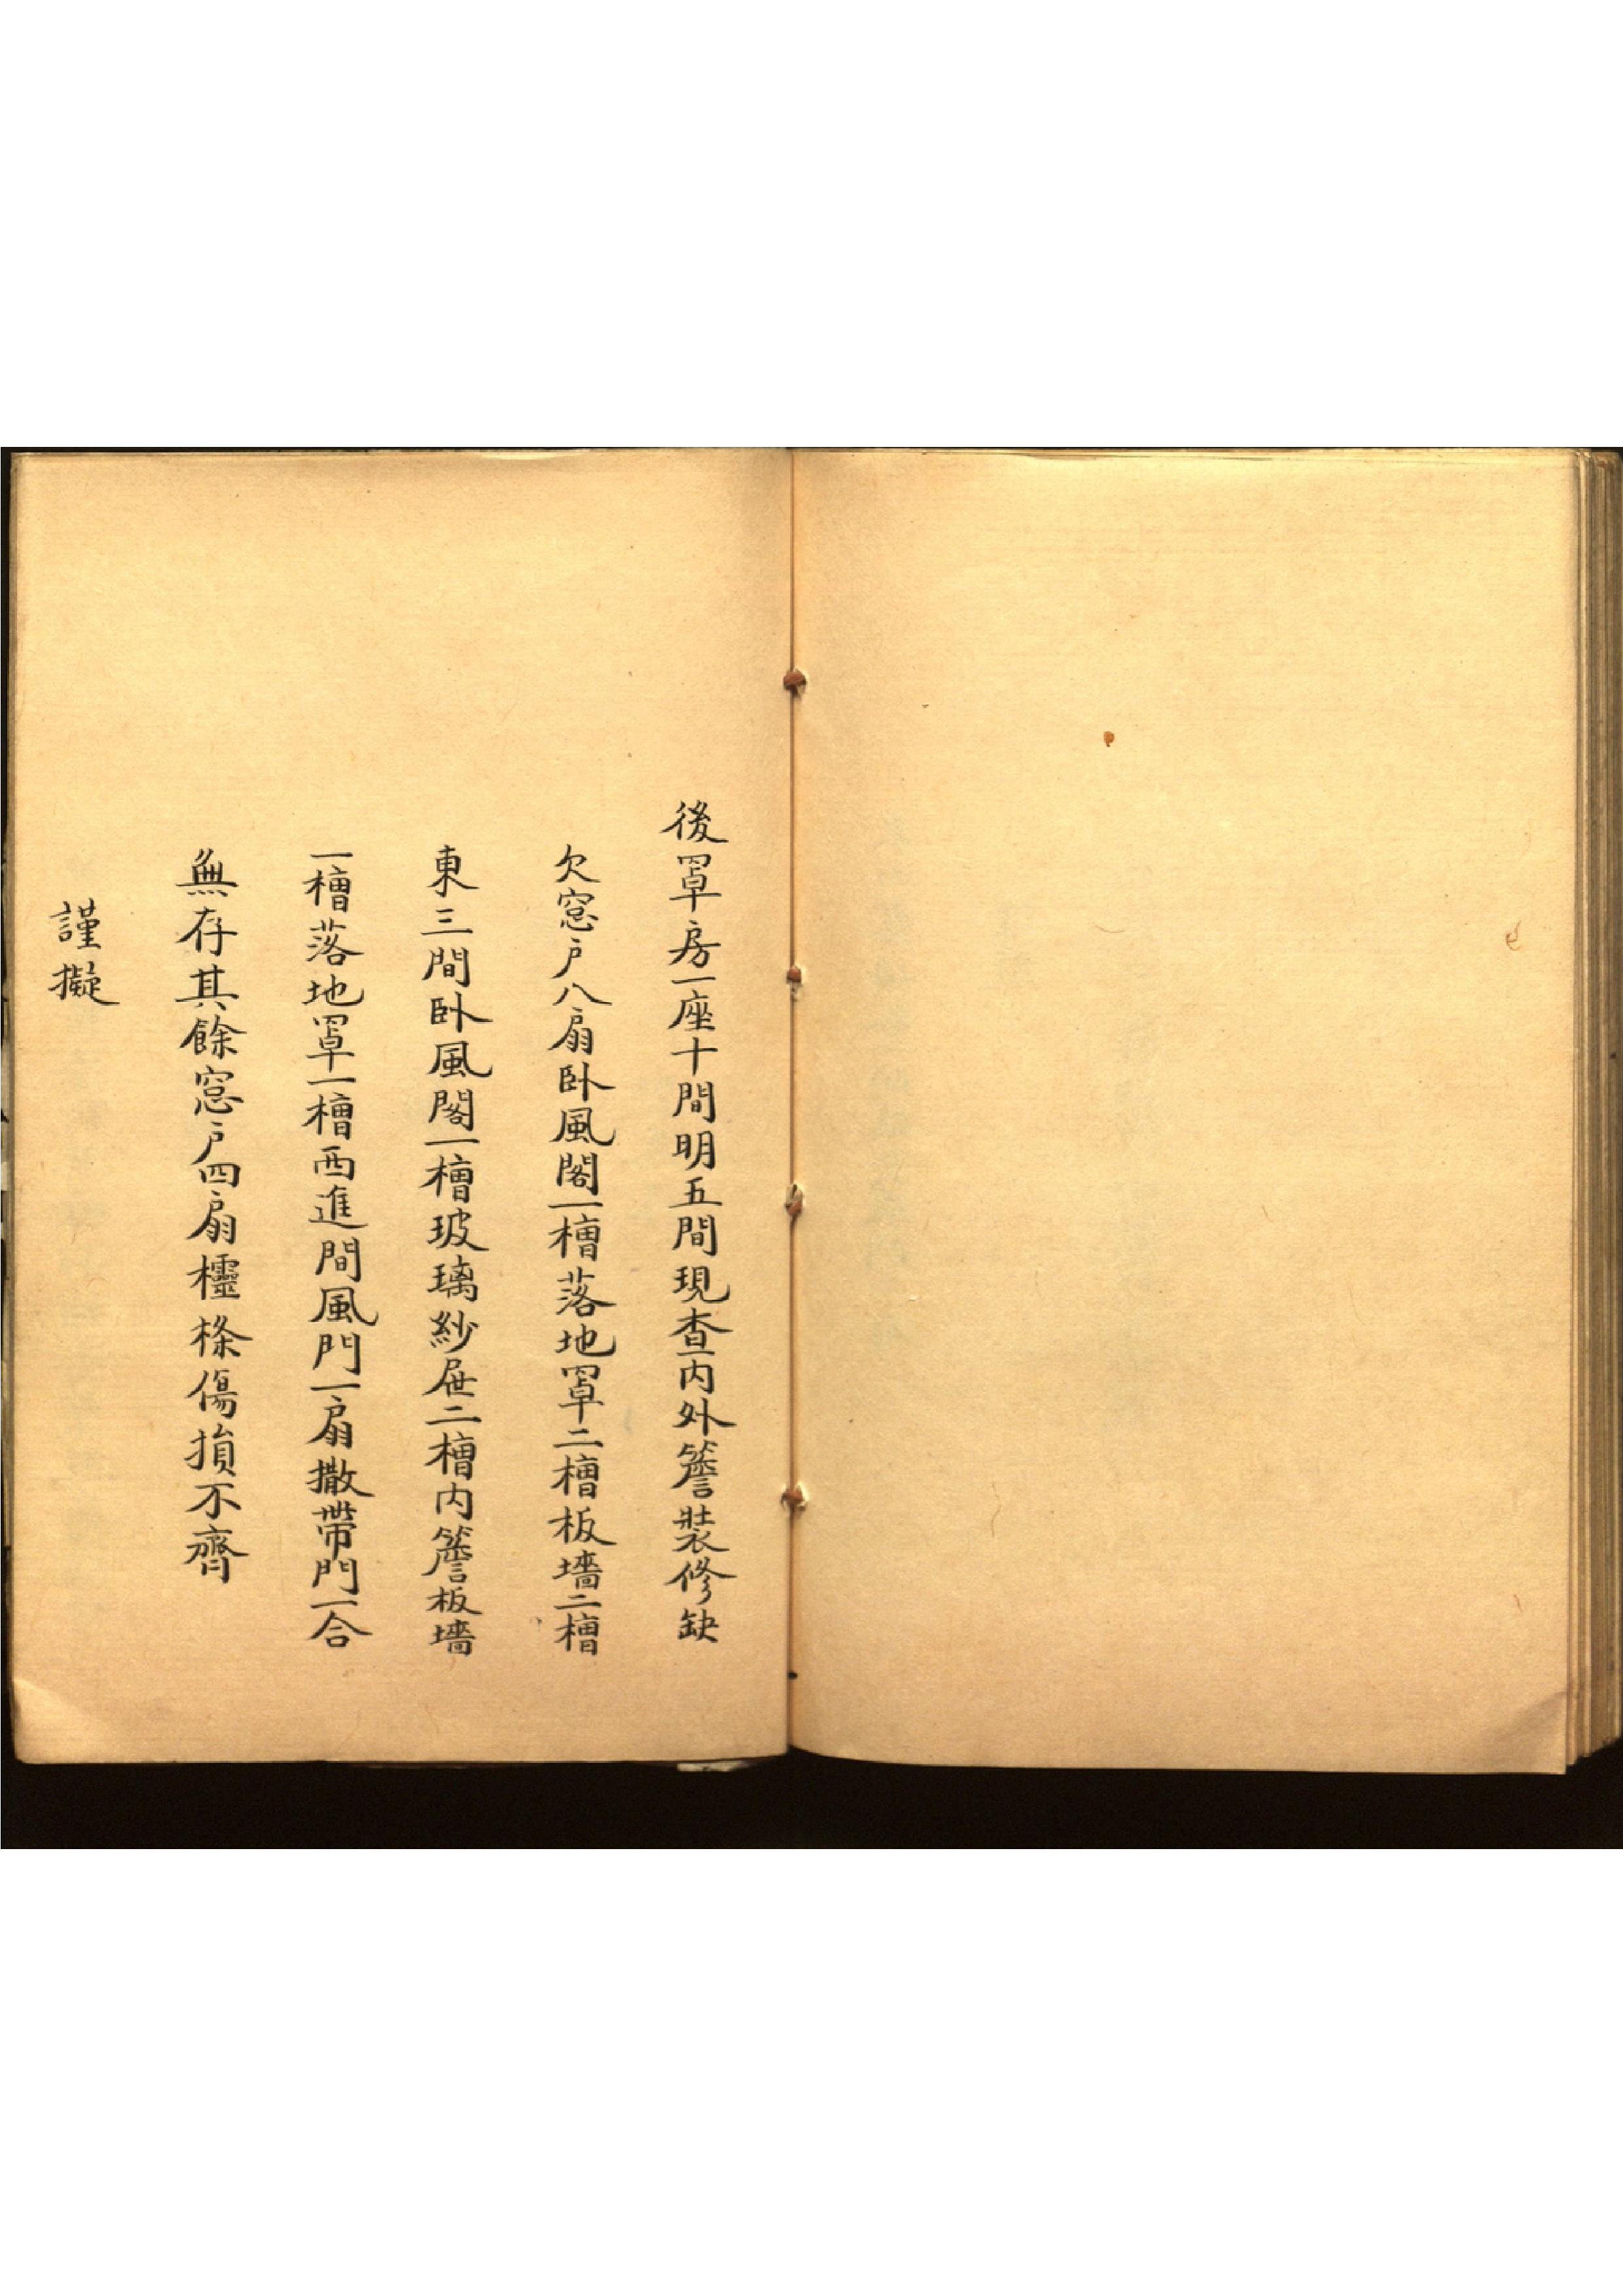 後罩房一座十間明五間現查内外簷裝修缺
欠窓户八扇卧風閣一槽落地罩二槽板墻二槽
東三間卧風閣一槽玻璃紗屜二槽内簷板墻
一槽落地罩一槽西進間風門一扇撒帶門一合
無存其餘窓户四扇櫺條傷損不齊
謹擬